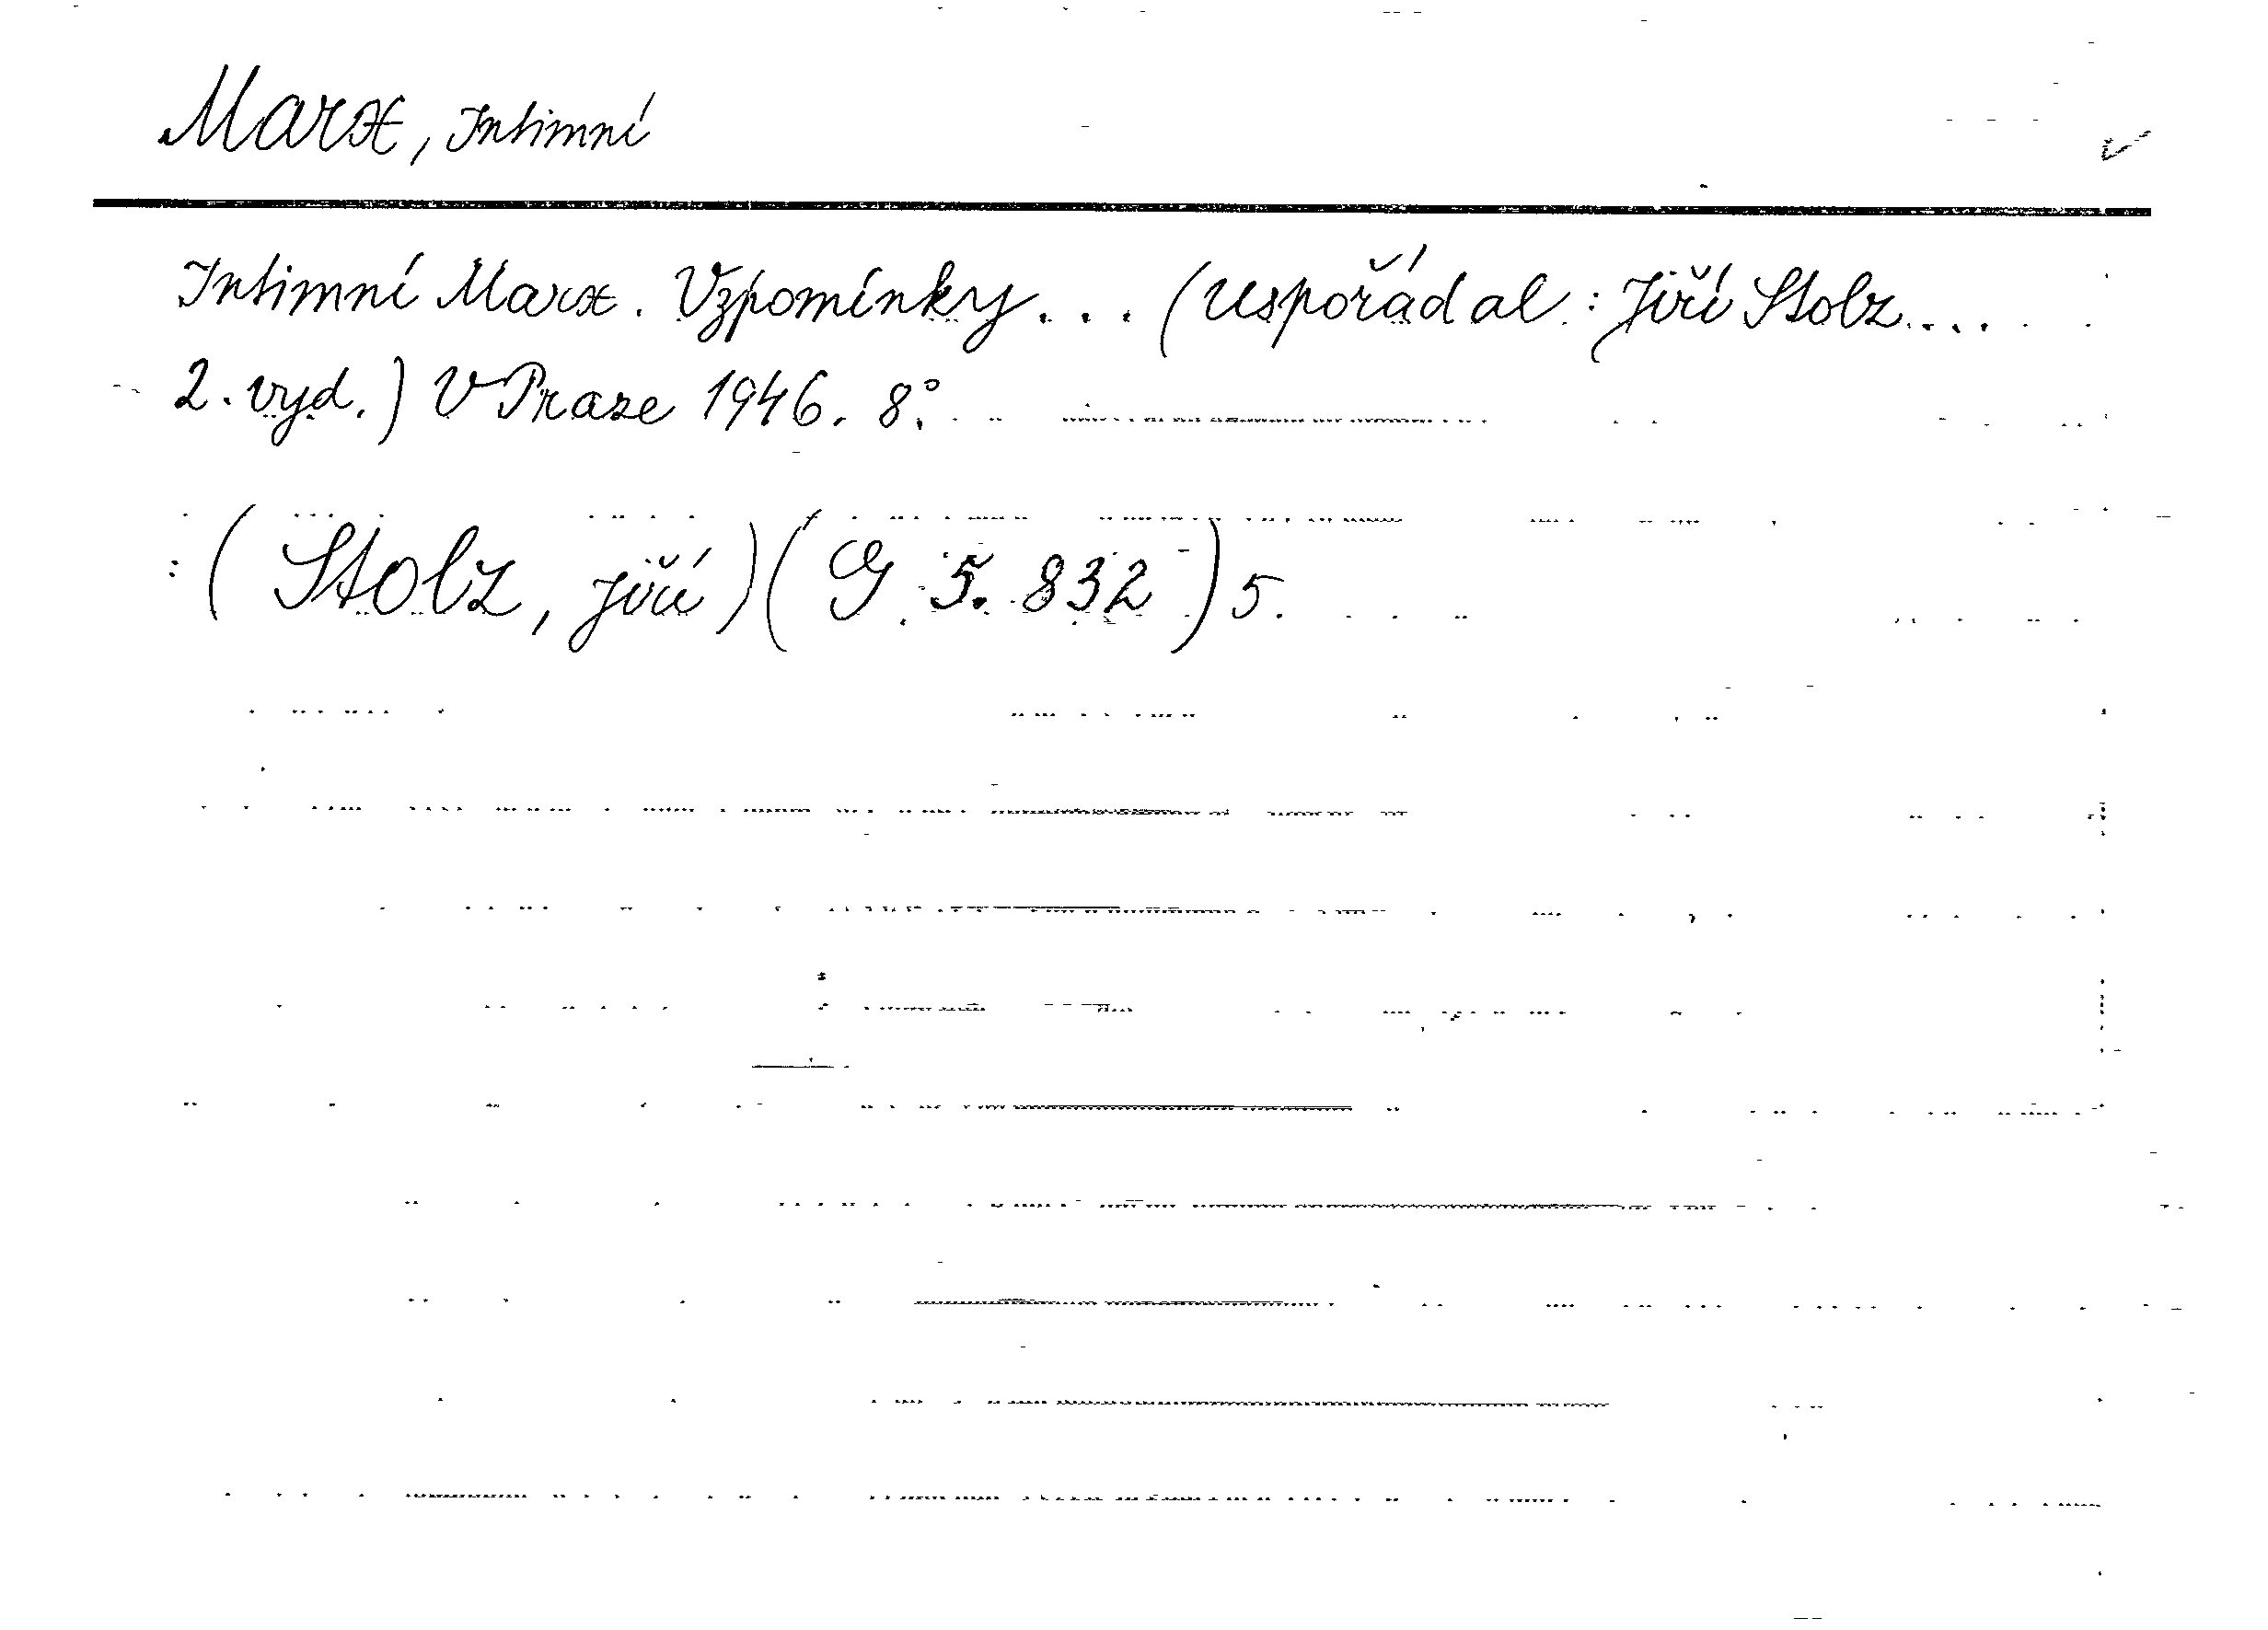 Marx, Intimní
Intimní Marx. Vzpomínky... (Uspořádal: Jiří Stolz....
2. vyd.) V Praze 1946. 8°.
: (Stolz, Jiří) (G 5. 832) 5.